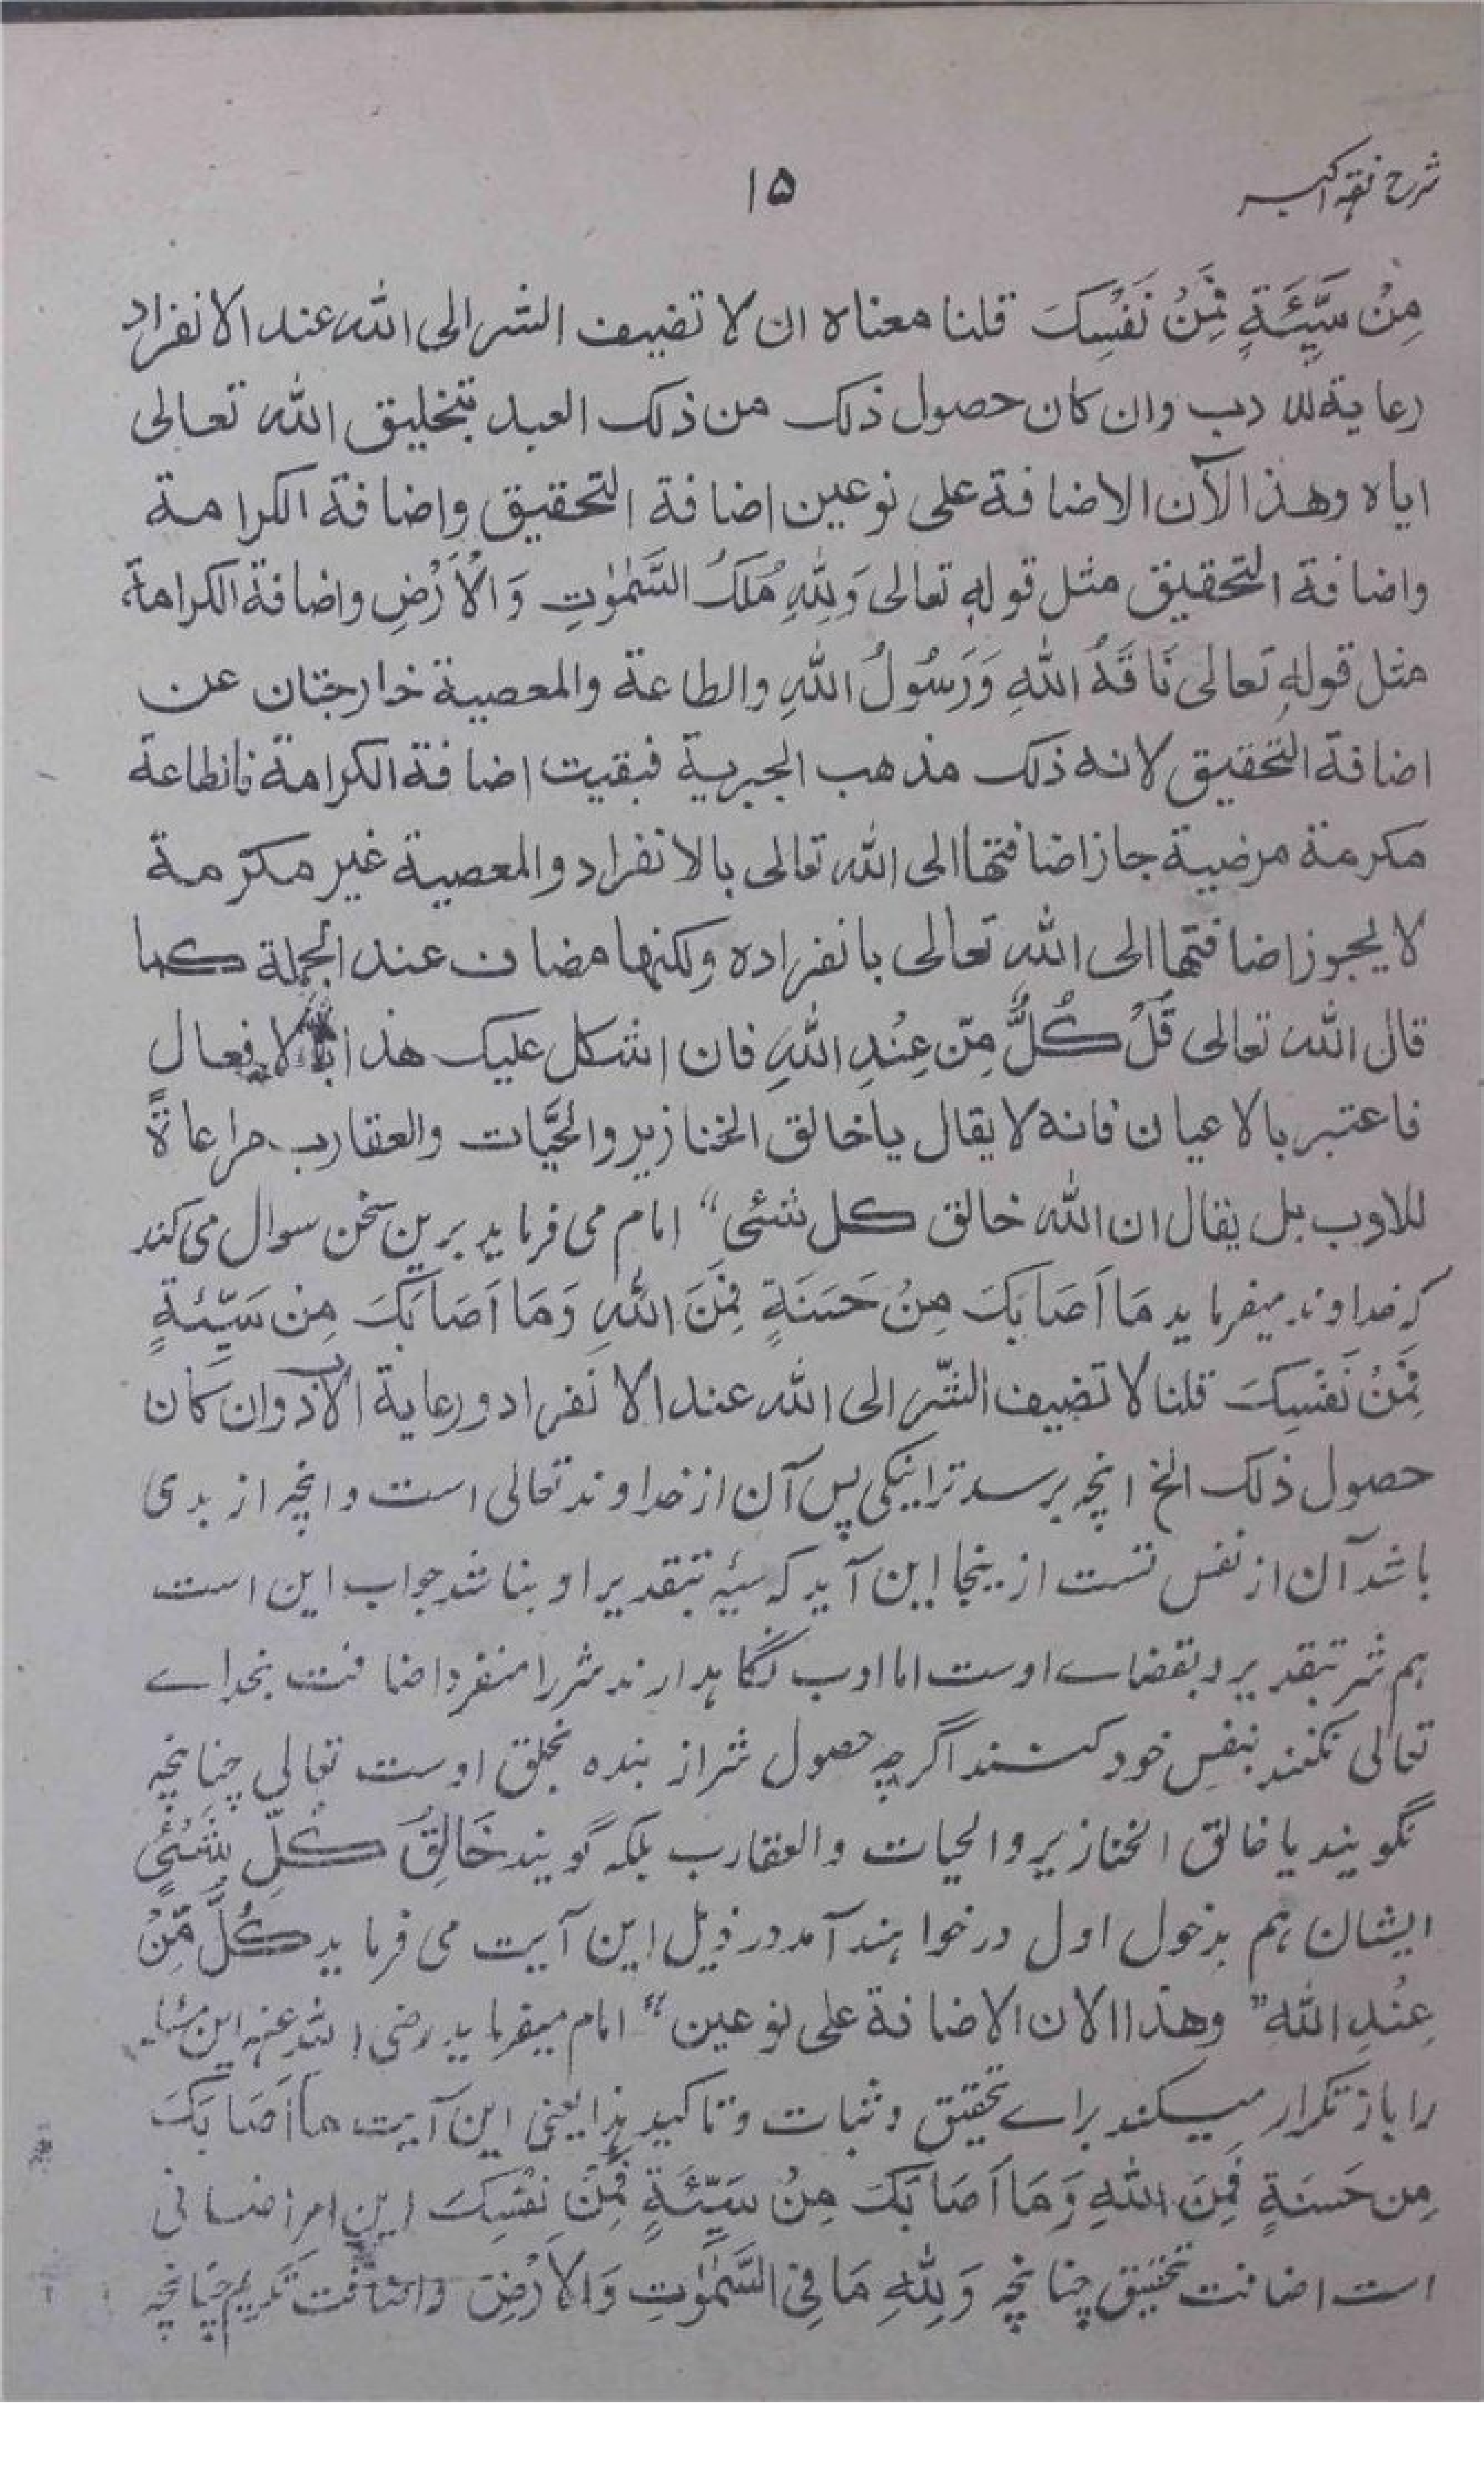 شرح فقہ اکبر
۱۵
مِنْ سَيِّئَةٍ فَمِنْ نَفْسِكَ قلنا معناه ان لا تضيف الشر الى الله عند الانفراد
رعاية للادب وان كان حصول ذلك من ذلك العبد بتخليق الله تعالى
اياه وهذا الآن الاضافة على نوعين اضافة التحقيق واضافة الكرامة
واضافة التحقيق مثل قوله تعالى وَلِلّٰهِ مُلْكُ السَّمٰوٰتِ وَالْاَرْضِ واضافة الكرامة
مثل قوله تعالى نَاقَةُ اللهِ وَرَسُولُ اللهِ والطاعة والمعصية خارجتان عن
اضافة التحقيق لانه ذلك مذهب الجبرية فبقيت اضافة الكرامة فالطاعة
مكرمة مرضية جاز اضافتها الى الله تعالى بالانفراد والمعصية غير مكرمة
لا يجوز اضافتها الى الله تعالى بانفراده ولكنها مضاف عند الجملة كما
قال الله تعالى قُلْ كُلٌّ مِّنْ عِنْدِ اللهِ فان اشكل عليك هذا بالافعال
فاعتبر بالاعيان فانه لا يقال يا خالق الخنازير والحيَّات والعقارب مراعاةً
للادب بل يقال ان الله خالق كل شئی“ امام می فرماید برین سخن سوال می کند
کہ خداوند میفرماید مَا اَصَابَكَ مِنْ حَسَنَةٍ فَمِنَ اللهِ وَمَا اَصَابَكَ مِنْ سَيِّئَةٍ
فَمِنْ نَفْسِكَ قلنا لا تضيف الشّر الى الله عند الانفراد ورعاية الادب وان كان
حصول ذلك الخ انچہ برسد ترا نیکی پس آن از خداوند تعالی است وانچہ از بدی
باشد آن از نفس تست از ینجا این آید کہ سیئہ بتقدیر او بناشد جواب این است
ہم شر بتقدیر و بقضاے اوست اما ادب نگاہدارند شر را منفرد اضافت بخداے
تعالی نکنند بنفس خود کنند اگرچہ حصول شر از بندہ بخلق اوست تعالی چنانچہ
نگویند یا خالق الخنازیر والحیات والعقارب بلکہ گویند خَالِقُ كُلِّ شَيْئٍ
ایشان ہم بدخول اول درخواہند آمد در ذیل این آیت می فرماید كُلٌّ مِّنْ
عِنْدِ اللهِ ”وهذا الان الاضافة على نوعين“ امام میفرماید رضی اللہ عنہ این
را باز تکرار میکند براے تحقیق و ثبات و تاکید ہذا یعنی این آیت مَا اَصَابَكَ
مِن حَسَنَةٍ فَمِنَ اللهِ وَمَا اَصَابَكَ مِنْ سَيِّئَةٍ فَمِنْ نَفْسِكَ این امر اضافی
است اضافت تحقیق چنانچہ وَلِلّٰهِ مَا فِي السَّمٰوٰتِ وَالْاَرْضِ واضافت تکریم چنانچہ